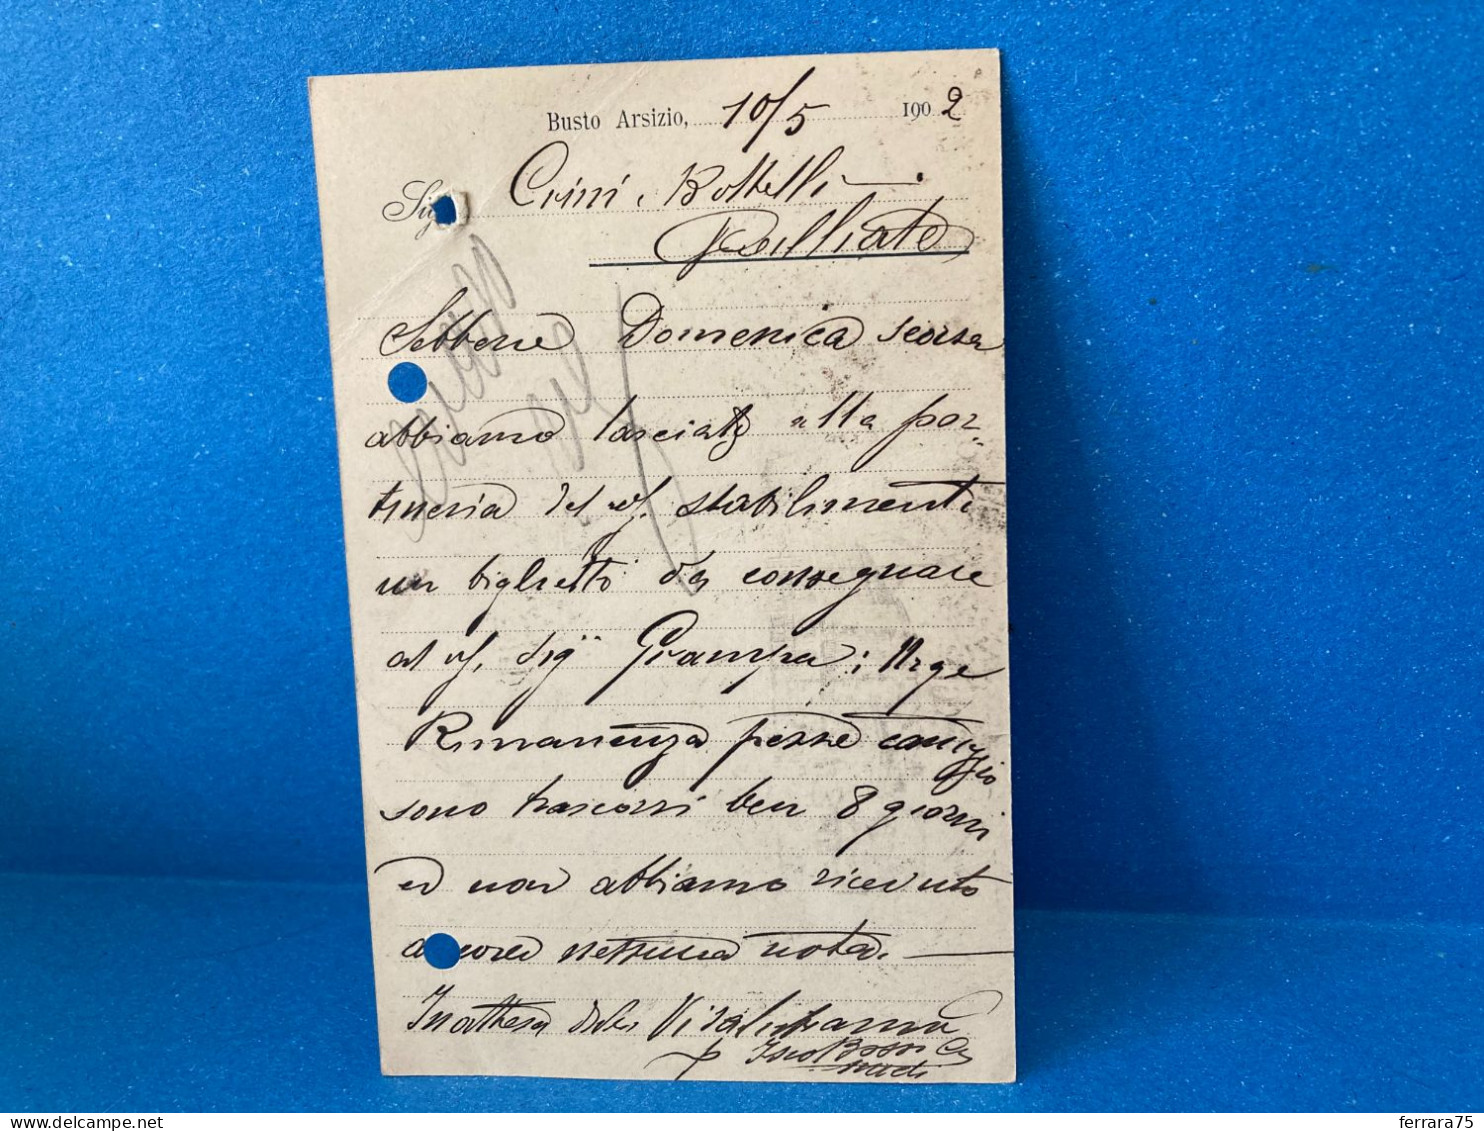 Busto Arsizio, 10/5 1902
Sig. Crini e Bottelli
Galliate
Sebbene Domenica scorsa
abbiamo lasciato alla por-
tineria del vs. stabilimento
un biglietto da consegnare
al vs. sigr Giampa: Urge
Rimanenza pezze
sono trascorsi ben 8 giorni
ed non abbiamo ricevuto
ancora nessuna nota. —
In attesa Vi salutiamo
p Bossi
ferrara75